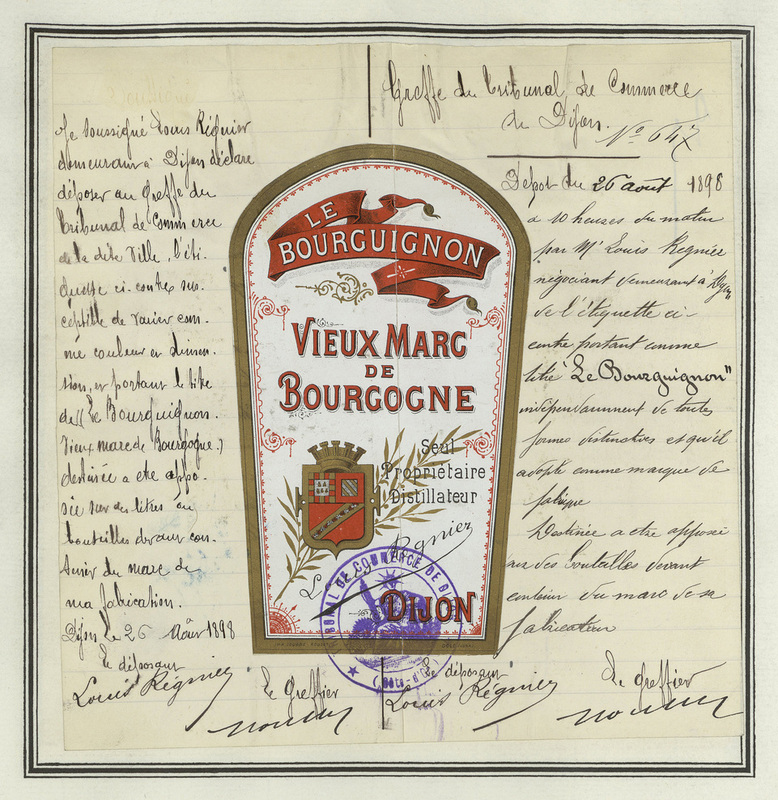 Je soussigné Louis Régnier
demeurant à Dijon déclare
déposer au Greffe du
Tribunal de Commerce
de la dite Ville, l'éti-
quette ci-contre sus-
ceptible de varier com-
me couleur et dimen-
sion, et portant le titre
de (Le Bourguignon.
Vieux marc de Bourgogne.)
destinée a être appo-
sée sur des litres ou
bouteilles devant con-
tenir du marc de
ma fabrication.
Dijon le 26 Août 1898
le déposant
Louis Régnier
le Greffier
Greffe du Tribunal de Commerce
de Dijon.
No 647
Dépot du 26 août 1898
à 10 heures du matin
par Mr Louis Regnier
négociant demeurant à Dijon
de l'étiquette ci-
contre portant comme
titre "Le Bourguignon"
indépendamment de toutes
formes distinctives et qu'il
adopte comme marque de
fabrique
Destinée a être apposée
sur des bouteilles devant
contenir du marc de sa
fabrication
Le déposant
Louis Régnier
Le greffier
LE
BOURGUIGNON
VIEUX MARC
DE
BOURGOGNE
Seul
Propriétaire
Distillateur
L. Regnier
DIJON
TRIBUNAL DE COMMERCE DE DIJON
(Côte-d'Or)